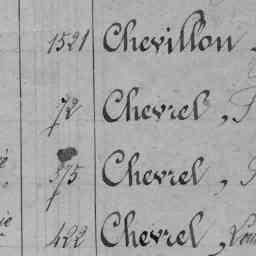 1521 Chevillon
72 Chevrel,
375 Chevrel,
422 Chevrel,